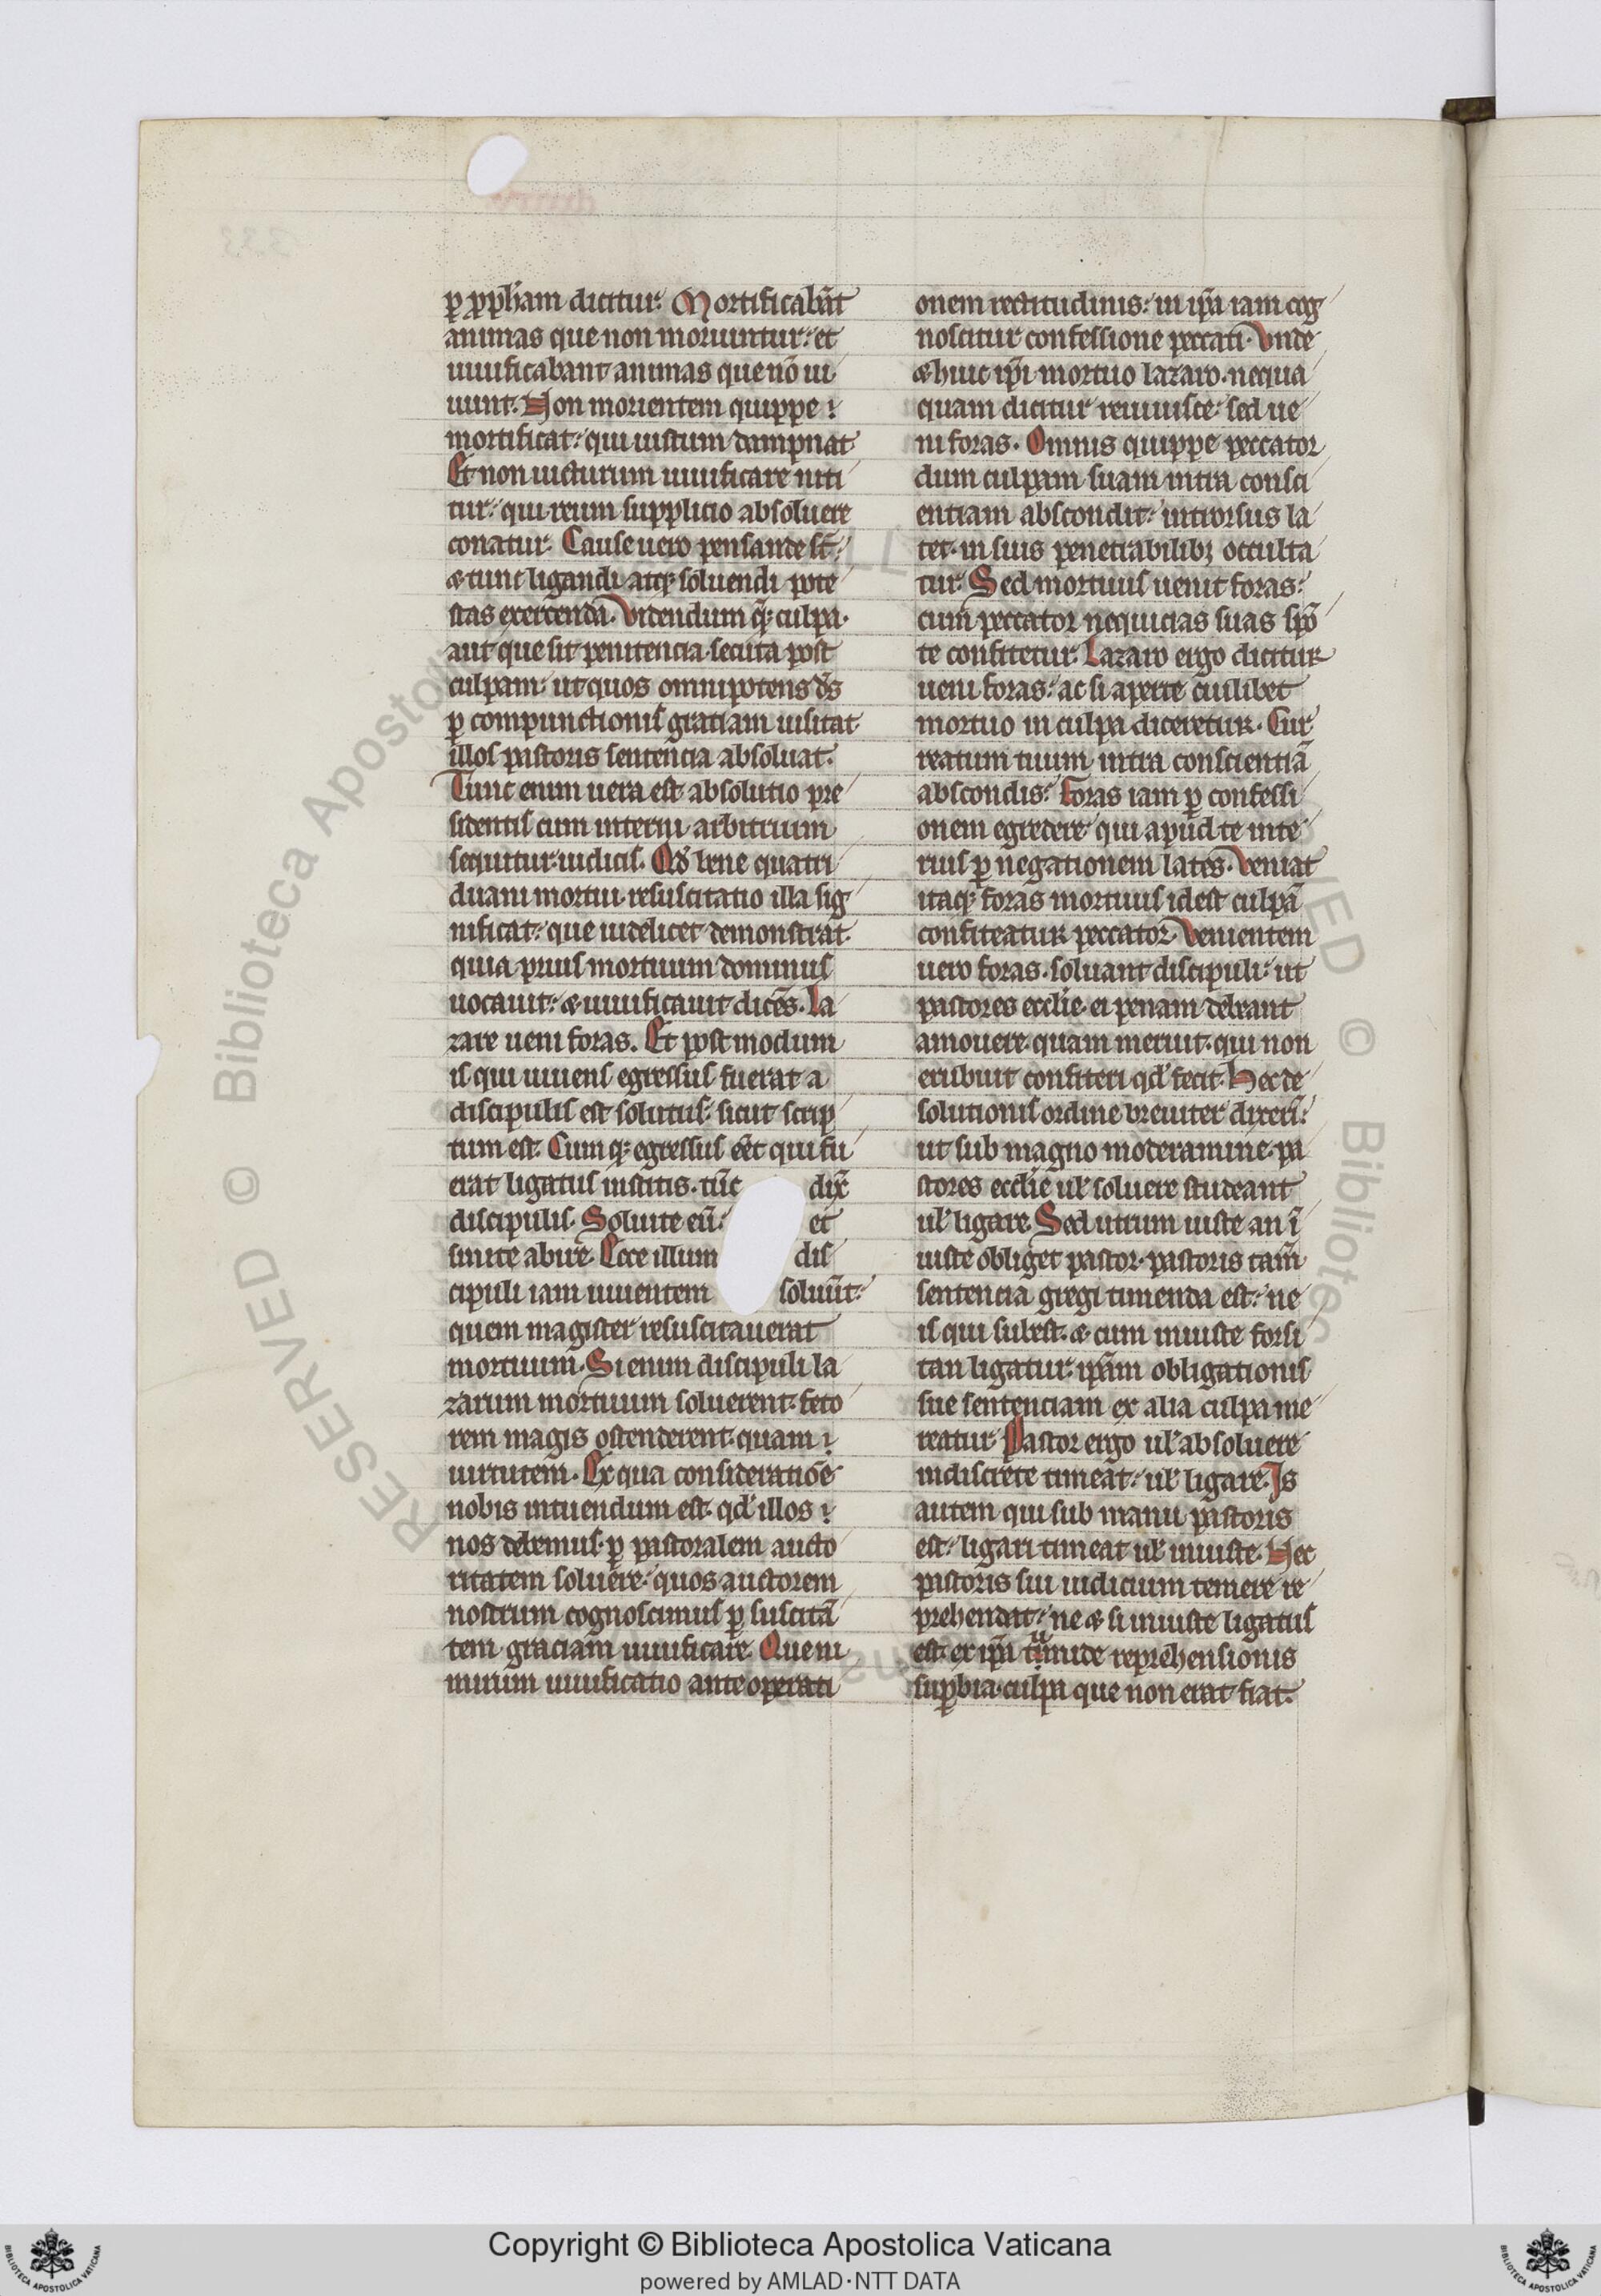 ꝑ ꝓph̄am dicitur. Mortificabāt
animas que non moriuntur. et
uiuificabant animas que nō ui
uunt. Non morientem quippe
mortificat. qui iustum dampnat
Et non uicturum uiuificare niti
tur. qui reum supplicio absoluere
conatur. Cause uero pensande st̄.
⁊ tunc ligandi atqꝫ soluendi pote
stas exercenda. Videndum ē qꝫ culpa.
aut que sit penitencia secuta post
culpam. ut quos omnipotens dˢ
ꝑ compunctionis gratiam uisitat
illos pastoris sentencia absoluat.
Tunc enim uera est absolutio pre
sidentis cum interni arbitrium
sequitur iudicis. Qd̄ bene quatri
duani mortui resuscitatio illa sig
nificat. que uidelicet demonstrat
quia prius mortuum dominus
uocauit. ⁊ uiuificauit dicēs. La
zare ueni foras. Et post modum
is qui uiuens egressus fuerat a
discipulis est solutus. sicut scrip
tum est. Cum qꝫ egressus eēt qui fu
erat ligatus institis. tūc dix̄
discipulis. Soluite eū. et
sinite abire. Ecce illum dis
cipuli iam uiuentem soluūt.
quem magister resuscitauerat
mortuum. Si enim discipuli la
zarum mortuum soluerent. feto
rem magis ostenderent quam
uirtutem. Ex qua consideratiōe
nobis intuendum est. qd̄ illos
nos debemus ꝑ pastoralem aucto
ritatem soluere. quos auctorem
nostrum cognoscimus ꝑ suscitā
tem graciam uiuificare. Que ni
mirum uiuificatio ante operati
onem rectitudinis. in ip̄a iam cog
noscitur confessione peccati. Vnde
⁊ huic ip̄i mortuo lazaro. nequa
quam dicitur reuiuisce. sed ue
ni foras. Omnis quippe peccator
dum culpam suam intra consci
entiam abscondit. introrsus la
tet. in suis penetrabilibꝫ occulta
tur. Sed mortuus uenit foras.
cum peccator nequicias suas spō
te confitetur. Lazaro ergo dicitur
ueni foras. ac si aperte cuilibet
mortuo in culpa diceretur. Cur
reatum tuum intra conscientiā
abscondis. Foras iam ꝑ confessi
onem egredere qui apud te inte
rius ꝑ negationem lates. Veniat
itaqꝫ foras mortuus id est culpā
confiteatur peccator. Venientem
uero foras. soluant discipuli. ut
pastores eccl̄ie. ei penam debeant
amouere quam meruit. qui non
erubuit confiteri qd̄ fecit. Hec de
solutionis ordine breuiter dixerī.
ut sub magno moderamine. pa
stores eccl̄ie ul̄ soluere studeant
ul̄ ligare. Sed utrum iuste an ī
iuste obliget pastor. pastoris tam̄
sentencia gregi timenda est. ne
is qui subest. ⁊ cum iniuste forsi
tan ligatur. ip̄am obligationis
sue sentenciam ex alia culpa me
reatur. Pastor ergo ul̄ absoluere
indiscrete timeat. ul̄ ligare. Is
autem qui sub manu pastoris
est. ligari timeat ul̄ iniuste. Nec
pastoris sui iudicium temere re
prehendat. ne ⁊ si iniuste ligatus
est. ex ip̄a tumide reprehensionis
suꝑbia. culpa que non erat fiat.
RESERVED © Biblioteca Apostolica
Copyright © Biblioteca Apostolica Vaticana
powered by AMLAD·NTT DATA
BIBLIOTECA APOSTOLICA VATICANA
BIBLIOTECA APOSTOLICA VATICANA